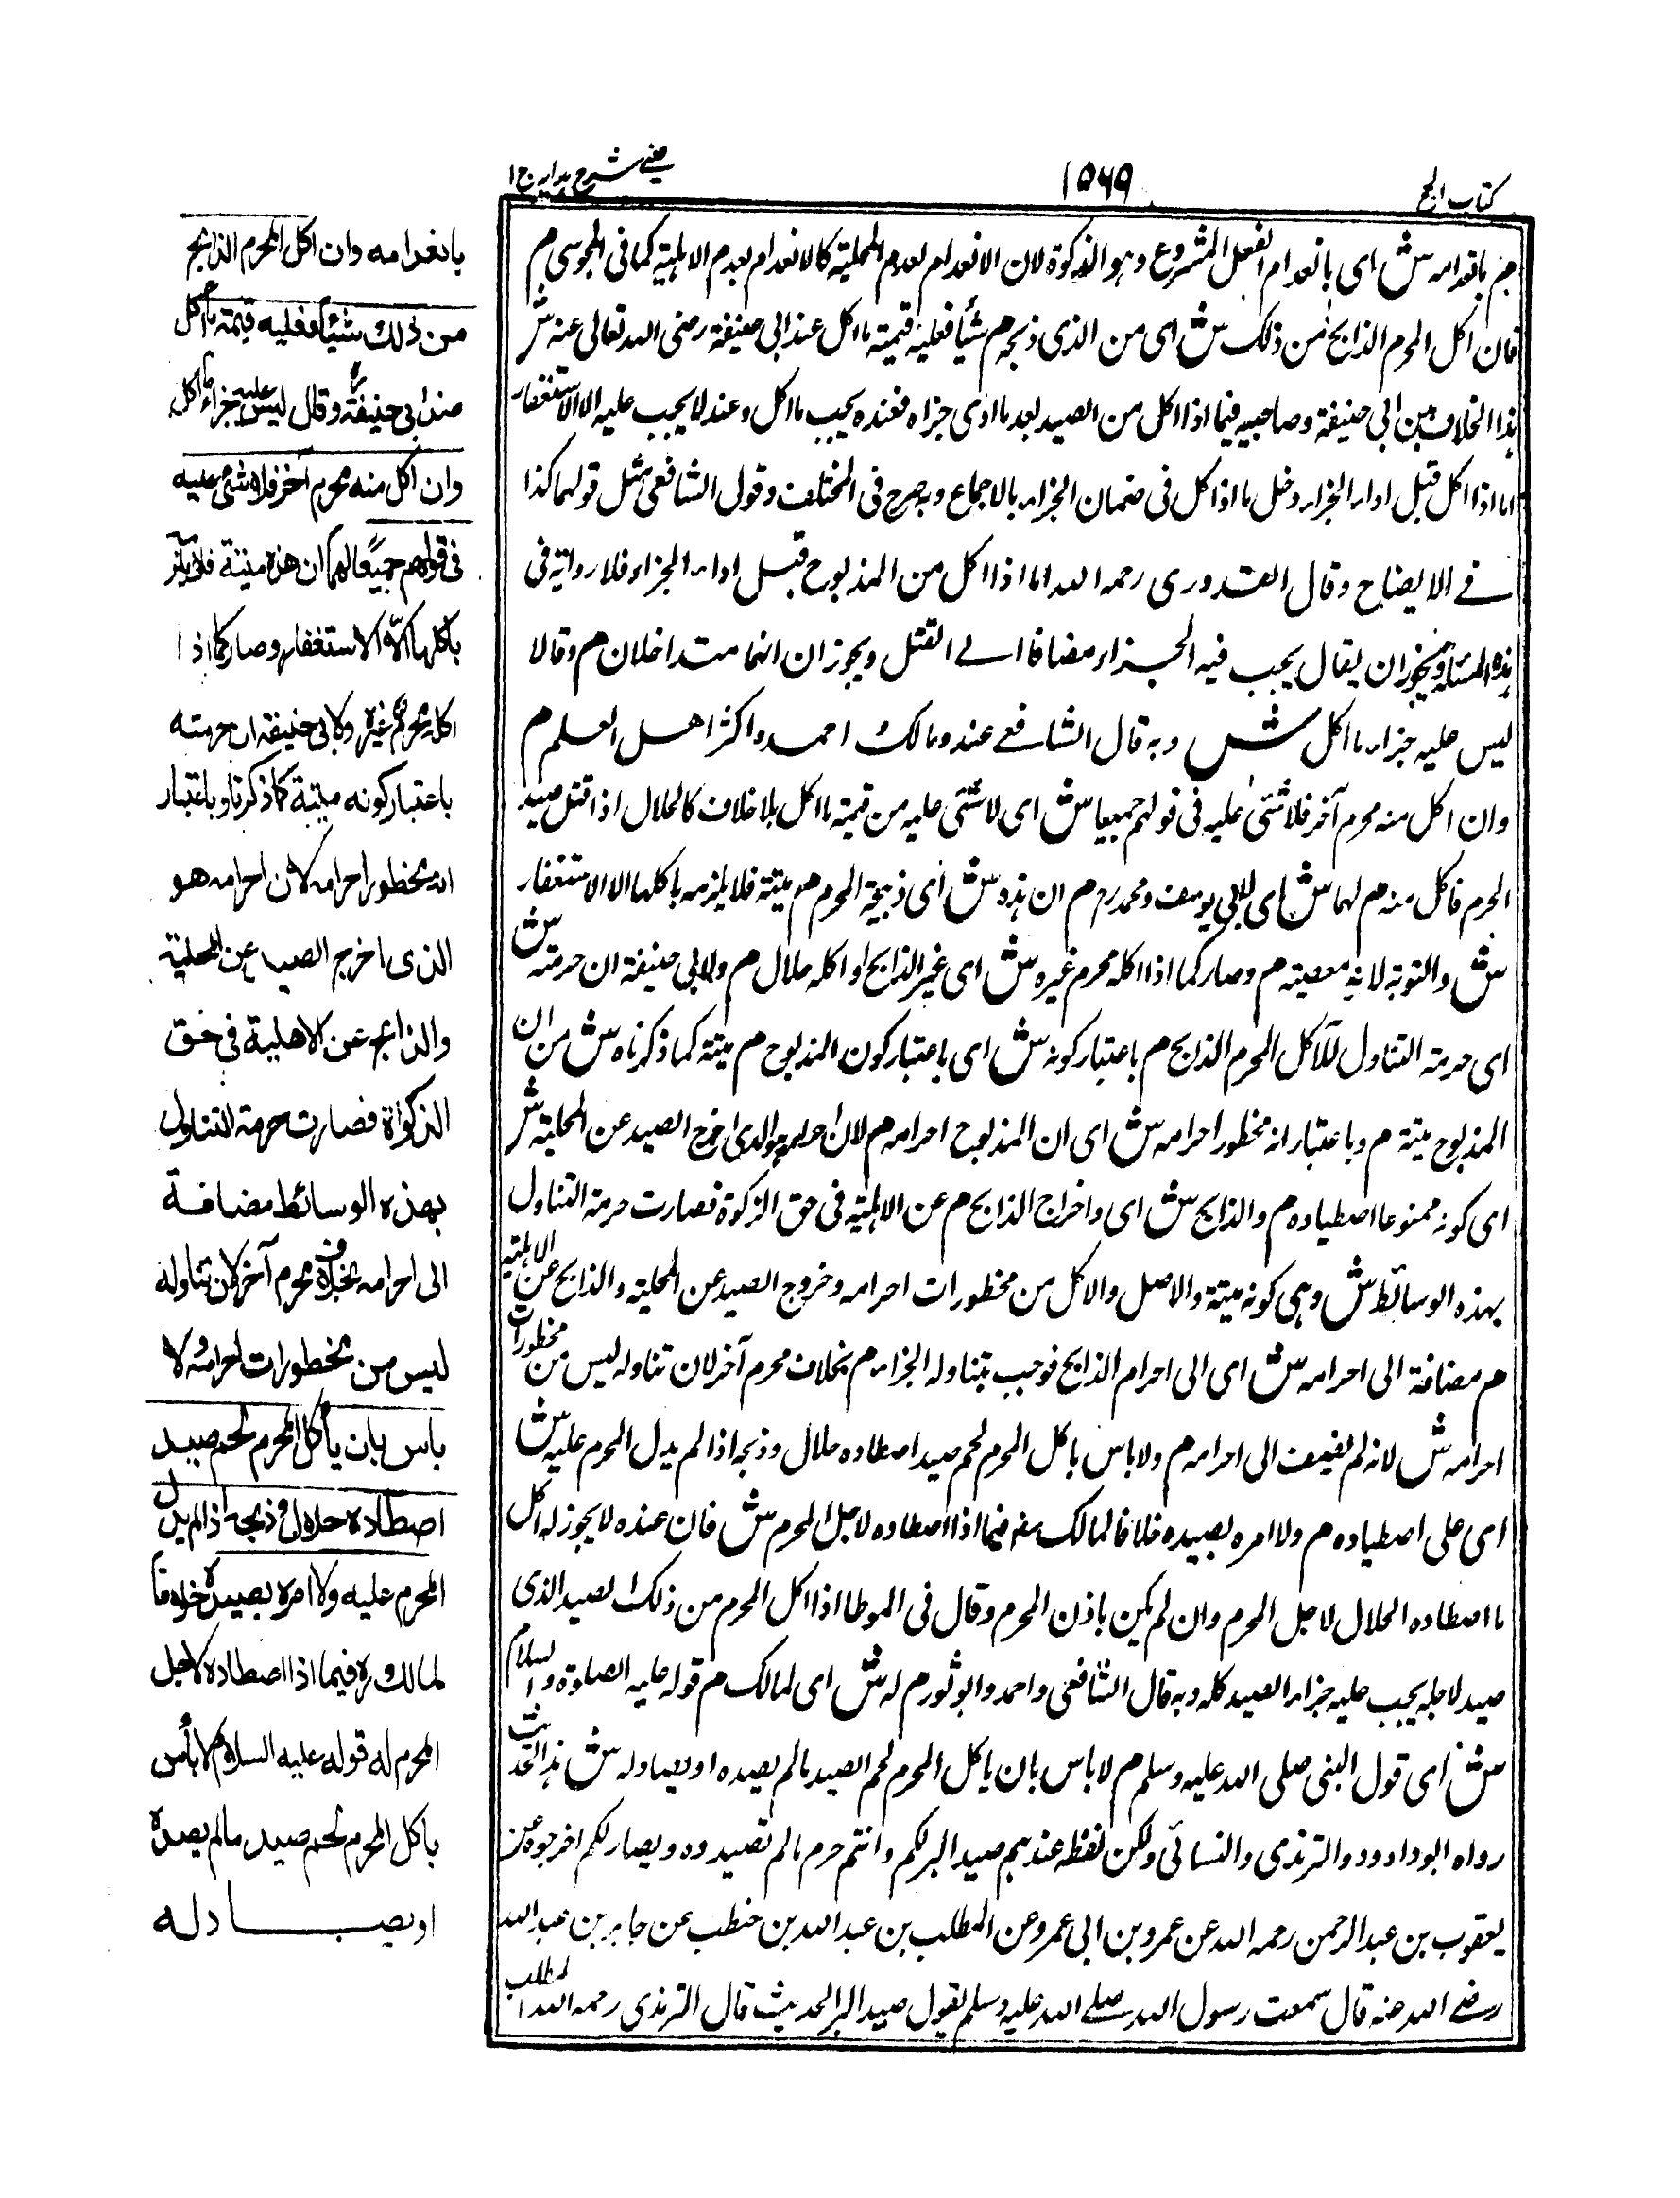 كتاب الحج
١٥٦٩
عيني شرح هدايه ج ١
م بانعدامه ش اى بانعدام الفعل المشروع وهو الذكوة لان الانعدام لعدم المحلية كالانعدام بعدم الاهلية كما فى المجوسى م
فان اكل المحرم الذابح من ذلك ش اى من الذى ذبحه م شيأ فعليه قيمة ما اكل عند ابى حنيفة رضى الله تعالى عنه ش
هذا الخلاف بين ابى حنيفة وصاحبيه فيما اذا اكل من الصيد بعد ما ادى جزاه فعنده يجب ما اكل وعند لا يجب عليه الا الاستغفار
اما اذا اكل قبل اداء الجزاء دخل ما اذا كل فى ضمان الجزاء بالاجماع وبه صرح فى المختلف وقول الشافعى مثل قولهما كذا
فى الايضاح وقال القدورى رحمه الله اما اذا اكل من المذبوح قبل اداء الجزاء فلا رواية فى
هذه المسئلة ويجوز ان يقال يجب فيه الجزاء مضافا الى القتل ويجوز ان انهما متداخلان م وقالا
ليس عليه جزاء ما اكل ش وبه قال الشافعى عند ومالك احمد واكثر اهل العلم م
وان اكل منه محرم آخر فلا شئى عليه فى قولهم جميعا ش اى لا شئى عليه من قيمة ما اكل بلا خلاف كالحلال اذا قتل صيد
الحرم فاكل منه م لهما ش اى لابى يوسف ومحمد رح م ان هذه ش اى ذبيحة المحرم م ميتة فلا يلزمه باكلها الا الاستغفار
ش والتوبة لانه معصية م وصار كما اذا اكله محرم غيره ش اى غير الذابح او اكله حلال م ولابى حنيفة ان حرمته ش
اى حرمة التناول للآكل المحرم الذابح م باعتبار كونه ش اى باعتبار كون المذبوح م ميتة كما ذكرناه ش من ان
المذبوح ميتة م وباعتبار انه محظور احرامه ش اى ان المذبوح احرامه م لان احرامه هو الذى اخرج الصيد عن المحلية ش
اى كونه ممنوعا اصطياده م والذابح ش اى واخراج الذابح م عن الاهلية فى حق الزكوة فصارت حرمة التناول
بهذه الوسائط ش وهى كونه ميتة والاصل والاكل من محظورات احرامه وخروج الصيد عن المحلية والذابح عن الاهلية
م مضافة الى احرامه ش اى الى احرام الذابح فوجب بتناوله الجزاء م بخلاف محرم آخر لان تناوله ليس من محظورات
احرامه ش لانه لم يضف الى احرامه م ولا باس باكل المحرم لحم صيد اصطاده حلال وذبحه اذا لم يدل المحرم عليه ش
اى على اصطياده م ولا امره بصيده خلافا لمالك رح فيما اذا اصطاده لاجل المحرم ش فان عنده لا يجوز له اكل
ما اصطاده الحلال لاجل المحرم وان لم يكن باذن المحرم وقال فى الموطا اذا اكل المحرم من ذلك الصيد الذى
صيد لاجله يجب عليه جزاء الصيد كله وبه قال الشافعى واحمد وابو ثور م له ش اى لمالك م قوله عليه الصلوة والسلام
ش اى قول النبى صلى الله عليه وسلم م لا باس بان ياكل المحرم لحم الصيد ما لم يصيده او يصاد له ش هذا الحديث
رواه ابو داود والترمذى والنسائى ولكن لفظه عندهم صيد البر لكم وانتم حرم ما لم تصيدوه ويصاد لكم اخرجوه عن
يعقوب بن عبد الرحمن رحمه الله عن عمرو بن ابى عمرو عن المطلب بن عبد الله بن حنطب عن جابر بن عبد الله
رضى الله عنه قال سمعت رسول الله صلى الله عليه وسلم يقول صيد البر الحديث قال الترمذى رحمه الله المطلب
بانعدامه وان اكل المحرم الذابح
من ذلك شيئاً فعليه قيمة ما اكل
عند ابى حنيفة رح وقالا ليس عليه جزاء ما اكل
وان اكل منه محرم آخر فلا شئ عليه
فى قولهم جميعًا لهما ان هذه ميتة فلا يلزم
باكلها الا الاستغفار وصار كما اذا
اكله محرم غيره ولابى حنيفة ان حرمته
باعتبار كونه ميتة كما ذكرنا وباعتبار
انه محظور احرامه لان احرامه هو
الذى اخرج الصيد عن المحلية
والذابح عن الاهلية فى حق
الذكوٰة فصارت حرمة التناول
بهذه الوسائط مضافة
الى احرامه بخلاف محرم آخر لان تناوله
ليس من محظورات احرامه ولا
باس بان يأكل المحرم لحم صيد
اصطاده حلال وذبحه اذا لم يدل
المحرم عليه ولا امره بصيده خلافا
لمالك رح فيما اذا اصطاده لاجل
المحرم له قوله عليه السلام لا بأس
باكل المحرم لحم صيد ما لم يصده
او يصاد له